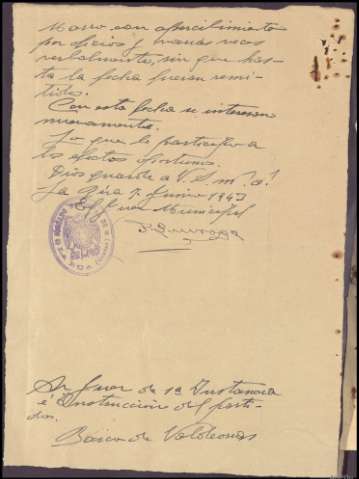 Marzo con apercibimiento
por oficios y varias veces
verbalmente, sin que has-
ta la fecha fueran remi-
tidos.
Con esta fecha se interesan
nuevamente.
Lo que le participo a
los efectos oportunos.
Dios guarde a V.S. m. a.
La Rúa 7 Junio 1943
El Juez Municipal
Sr Juez de 1ª Instancia
é Instrucción del parti-
do.
Barco de Valdeorras